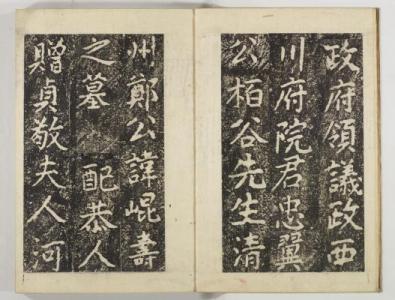 政府領議政西
川府院君忠翼
公栢谷先生清
州鄭公諱崐壽
之墓 配恭人
贈貞敬夫人河